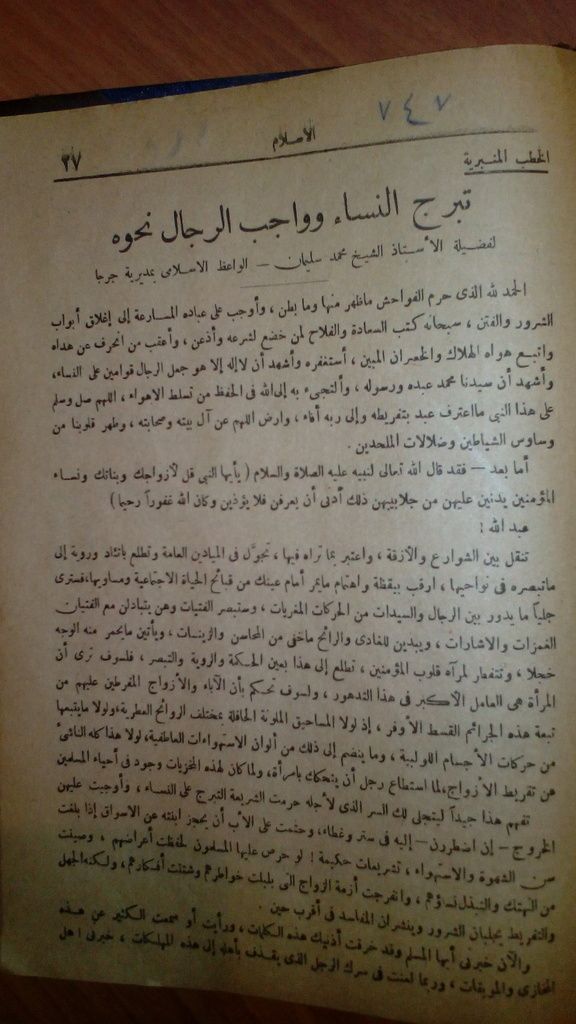 ٧٤٧
الاسلام
٣٧
الخطب المنبرية
تبرج النساء وواجب الرجال نحوه
لفضيلة الأستاذ الشيخ محمد سليمان — الواعظ الاسلامى بمديرية جرجا
الحمد لله الذى حرم الفواحش ماظهر منها وما بطن ، وأوجب على عباده المسارعة إلى إغلاق أبواب
الشرور والفتن ، سبحانه كتب السعادة والفلاح لمن خضع لشرعه وأذعن ، وأعقب من انحرف عن هداه
واتبع هواه الهلاك والخسران المبين ، أستغفره وأشهد أن لاإله إلا هو جعل الرجال قوامين على النساء،
وأشهد أن سيدنا محمد عبده ورسوله ، وألتجىء به إلى الله فى الحفظ من تسلط الاهواء ، اللهم صل وسلم
على هذا النبى مااعترف عبد بتفريطه وإلى ربه أفاء ، وارض اللهم عن آل بيته وصحابته ، وطهر قلوبنا من
وساوس الشياطين وضلالات الملحدين .
أما بعد — فقد قال الله تعالى لنبيه عليه الصلاة والسلام ( يأيها النبى قل لأزواجك وبناتك ونساء
المؤمنين يدنين عليهن من جلابيبهن ذلك أدنى أن يعرفن فلا يؤذين وكان الله غفوراً رحيما )
عبد الله !
تنقل بين الشوارع والأزقة ، واعتبر بما تراه فيها ، تجوّل فى الميادين العامة وتطلع باتئاد وروية إلى
ماتبصره فى نواحيها ، ارقب بيقظة واهتمام مايمر أمام عينك من قبائح الحياة الاجتماعية ومساويها،فسترى
جلياً ما يدور بين الرجال والسيدات من الحركات المغريات ، وستبصر الفتيات وهن يتبادلن مع الفتيان
الغمزات والاشارات ، ويبدين للغادى والرائح ماخفى من المحاسن والزينات ، ويأتين مايحمر منه الوجه
خجلا ، وتنفطر لمرآه قلوب المؤمنين ، تطلع إلى هذا بعين الحكمة والروية والتبصر ، فلسوف ترى أن
المرأة هى العامل الأكبر فى هذا التدهور ، ولسوف تحكم بأن الآباء والأزواج المفرطين عليهم من
تبعة هذه الجرائم القسط الأوفر ، إذ لولا المساحيق الملونة الحافلة بمختلف الروائح العطرية،ولولا مايتبعها
من حركات الأجسام اللولبية ، وما ينضم إلى ذلك من ألوان الاستهواءات العاطفية،لولا هذا كله الناشئ
عن تفريط الأزواج،لما استطاع رجل أن يتحكك بامرأة، ولما كان لهذه المخزيات وجود فى أحياء المسلمين
تفهم هذا جيداً ليتجلى لك السر الذى لأجله حرمت الشريعة التبرج على النساء ، وأوجبت عليهن
الخروج - إن اضطررن - إليه فى ستر وغطاء، وحتمت على الأب أن يحجز ابنته عن الاسواق إذا بلغت
سن الشهوة والاستهواء ، تشريعات حكيمة ! لو حرص عليها المسلمون لحفظت أعراضهم ، وصينت
من التهتك والتبذل نساؤهم ، وانفرجت أزمة الزواج التى بلبلت خواطرهم وشتتت أفكارهم ، ولكنه الجهل
والتفريط يجلبان الشرور وينشران المفاسد فى أقرب حين .
والآن خبرنى أيها المسلم وقد خرقت أذنيك هذه الكلمات ، ورأيت أو سمعت الكثير عن هذه
المخازى والموبقات ، وربما لعنت فى سرك الرجل الذى يقذف بأهله إلى هذه المهلكات ، خبرنى ! هل